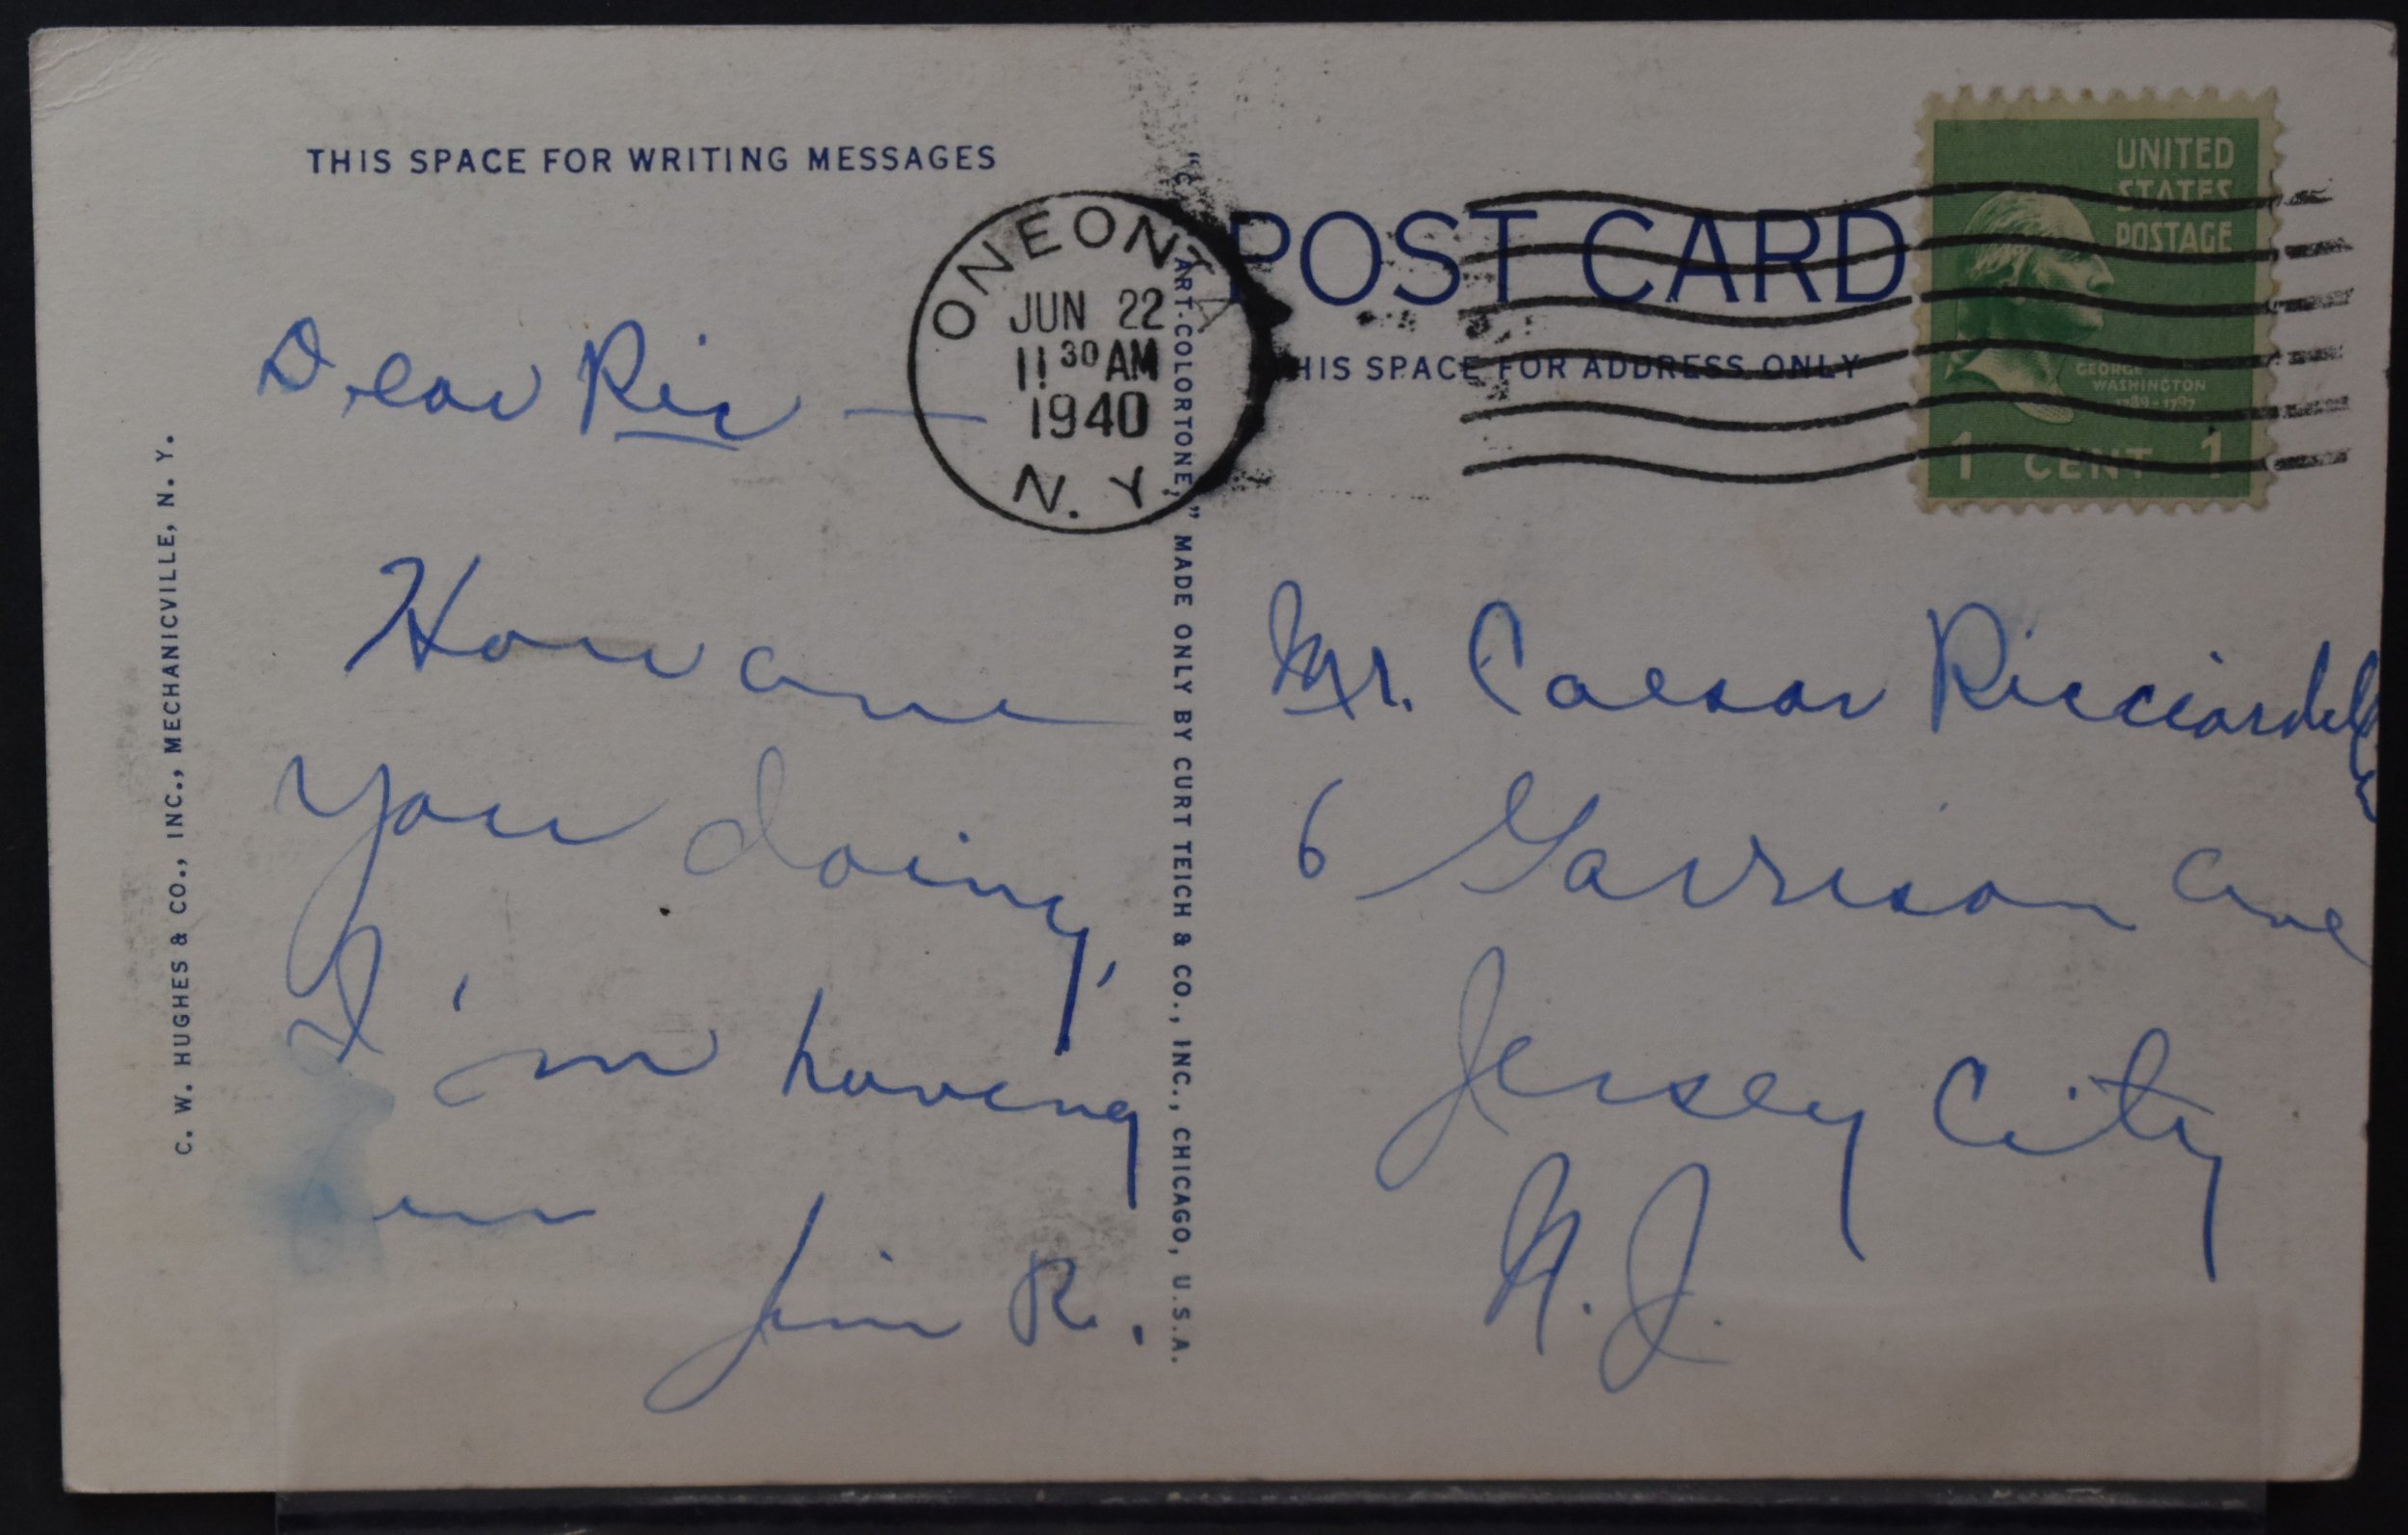 THIS SPACE FOR WRITING MESSAGES
Dear Ric —
How are
you doing,
I'm having
Jim R.
C. W. HUGHES & CO., INC., MECHANICVILLE, N. Y.
ONEONTA
JUN 22
11 30 AM
1940
N. Y.
"C. T. ART-COLORTONE," MADE ONLY BY CURT TEICH & CO., INC., CHICAGO, U.S.A.
POST CARD
THIS SPACE FOR ADDRESS ONLY
UNITED
STATES
POSTAGE
GEORGE
WASHINGTON
1789-1797
1 CENT 1
Mr. Caesar Ricciardelli
6 Garrison Ave
Jersey City
N. J.